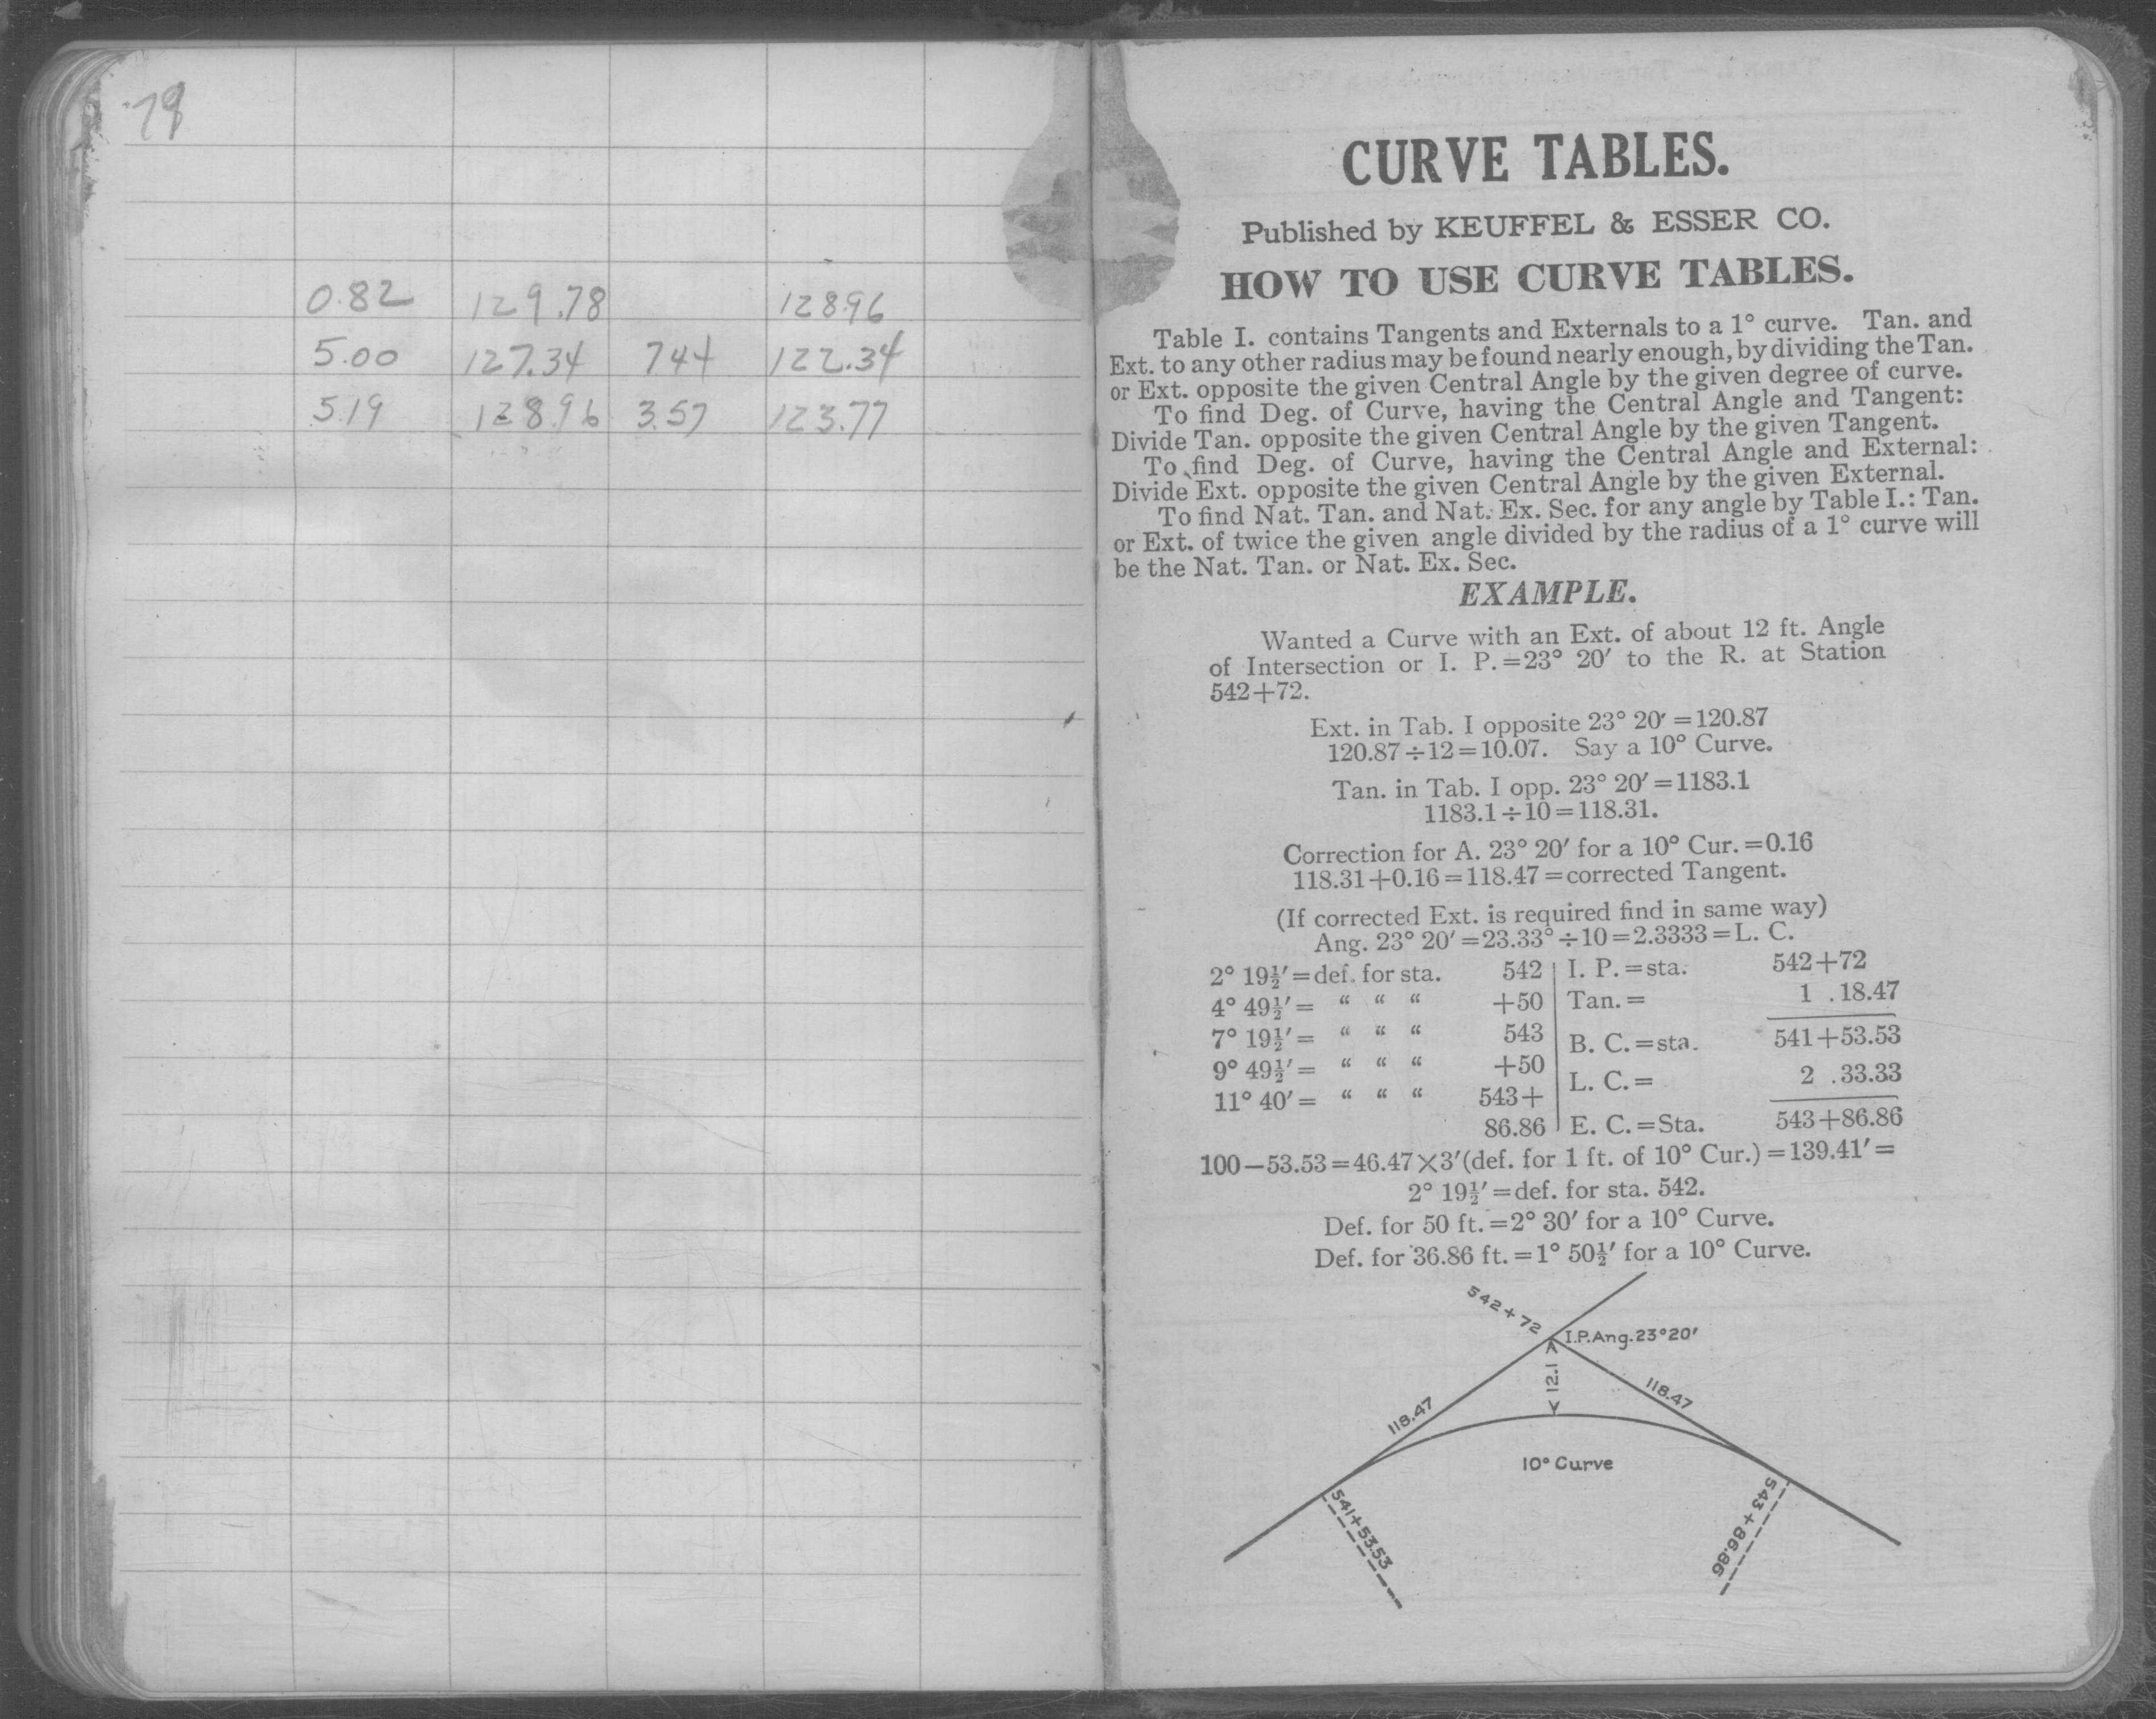 79
0.82 129.78 128.96
5.00 127.34 7.44 122.34
5.19 128.96 3.57 123.77
CURVE TABLES.
Published by KEUFFEL & ESSER CO.
HOW TO USE CURVE TABLES.
Table I. contains Tangents and Externals to a 1° curve. Tan. and
Ext. to any other radius may be found nearly enough, by dividing the Tan.
or Ext. opposite the given Central Angle by the given degree of curve.
To find Deg. of Curve, having the Central Angle and Tangent:
Divide Tan. opposite the given Central Angle by the given Tangent.
To find Deg. of Curve, having the Central Angle and External:
Divide Ext. opposite the given Central Angle by the given External.
To find Nat. Tan. and Nat. Ex. Sec. for any angle by Table I.: Tan.
or Ext. of twice the given angle divided by the radius of a 1° curve will
be the Nat. Tan. or Nat. Ex. Sec.
EXAMPLE.
Wanted a Curve with an Ext. of about 12 ft. Angle
of Intersection or I. P.=23° 20′ to the R. at Station
542+72.
Ext. in Tab. I opposite 23° 20′=120.87
120.87÷12=10.07. Say a 10° Curve.
Tan. in Tab. I opp. 23° 20′=1183.1
1183.1÷10=118.31.
Correction for A. 23° 20′ for a 10° Cur.=0.16
118.31+0.16=118.47=corrected Tangent.
(If corrected Ext. is required find in same way)
Ang. 23° 20′=23.33°÷10=2.3333=L. C.
2° 19½′=def. for sta. 542
4° 49½′= “ “ “ +50
7° 19½′= “ “ “ 543
9° 49½′= “ “ “ +50
11° 40′= “ “ “ 543+
86.86
I. P.=sta. 542+72
Tan.= 1 .18.47
B. C.=sta. 541+53.53
L. C.= 2 .33.33
E. C.=Sta. 543+86.86
100−53.53=46.47×3′(def. for 1 ft. of 10° Cur.)=139.41′=
2° 19½′=def. for sta. 542.
Def. for 50 ft.=2° 30′ for a 10° Curve.
Def. for 36.86 ft.=1° 50½′ for a 10° Curve.
542+72
I.P.Ang.23°20′
12.1
118.47
118.47
10° Curve
541+53.53
543+86.86